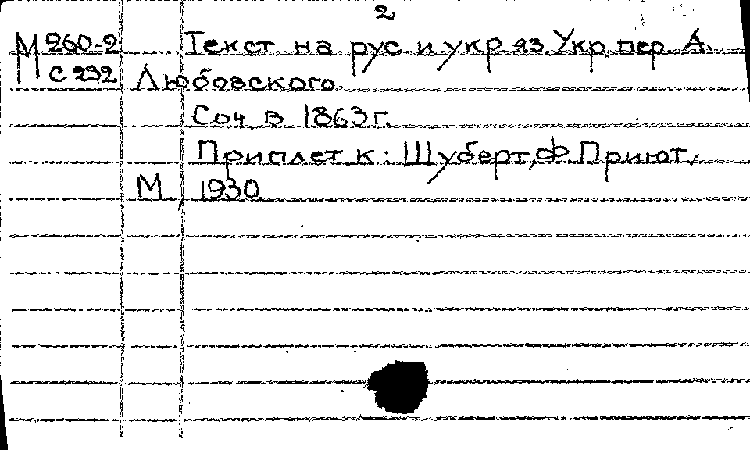 2
М 260-2 Текст на рус и укр яз. Укр. пер. А.
С 232 Любовского
Соч. в 1863г.
Приплет к: Шуберт, Ф Приют,
М 1930